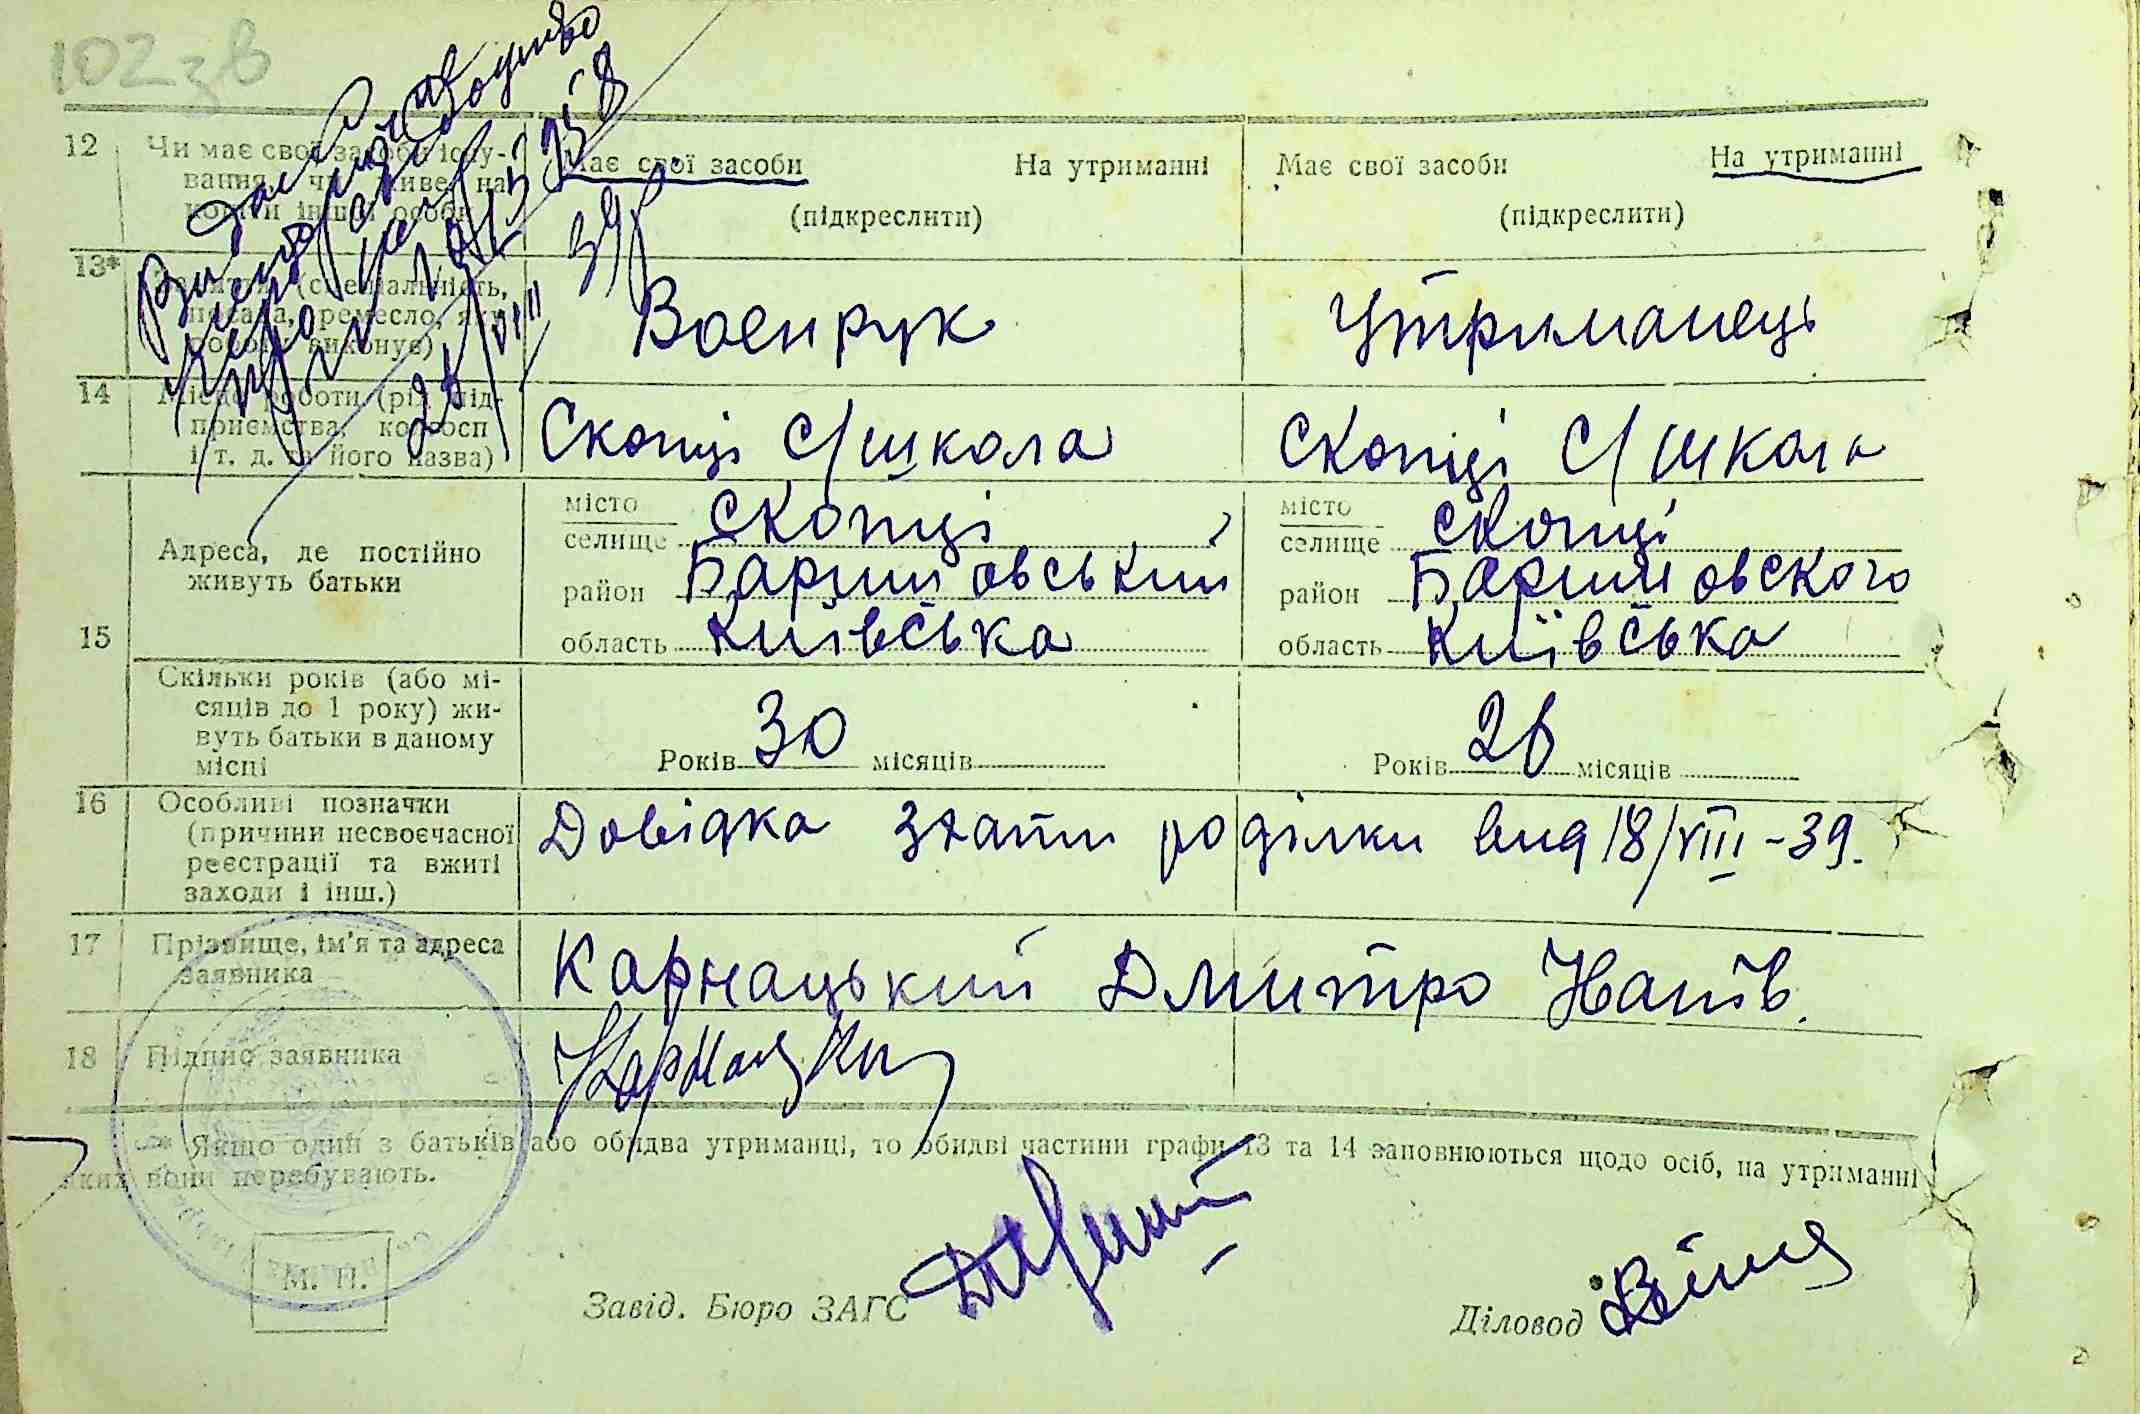 102зв
12 Чи має свої засоби існу- Має свої засоби На утриманні Має свої засоби На утриманні
вання, чи живе на
кошти іншої особи (підкреслити) (підкреслити)
13* (спеціальність,
посада, ремесло, яку Воєнрук Утриманець
роботу виконує)
14 Місце роботи (рід підприємства, колгосп і т. д. та його назва) Скопці С/школа Скопці С/школа
15 Адреса, де постійно живуть батьки
місто
селище Скопці
район Баришовський
область Київська
місто
селище Скопці
район Баришовского
область Київська
Скільки років (або мі-
сяців до 1 року) жи-
вуть батьки в даному
місці Років 30 місяців Років 26 місяців
16 Особливі позначки
(причини несвоєчасної Довідка роділки вид 18/VIII-39.
реєстрації та вжиті
заходи і інш.)
17 Прізвище, ім'я та адреса Карнацький Дмитро
заявника
18 Підпис заявника
* Якщо один з батьків або обидва утриманці, то обидві частини графи 13 та 14 заповнюються щодо осіб, на утриманні
яких вони перебувають.
М. П.
Завід. Бюро ЗАГС Діловод